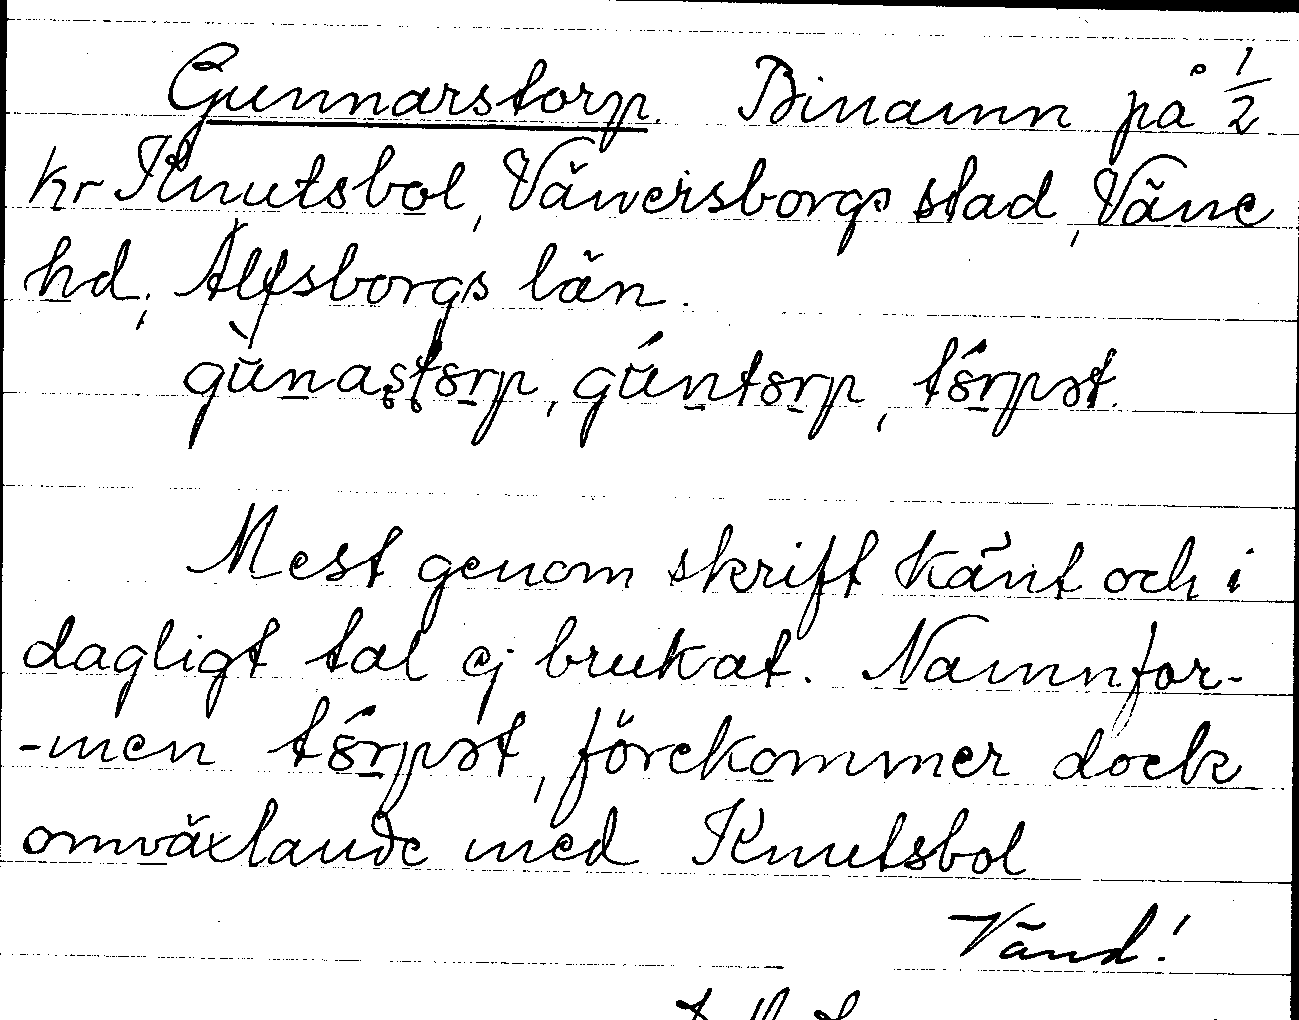 Gunnarstorp. Binamn på 1/2
kr Knutsbol, Vänersborgs stad, Väne
hd, Älfsborgs län.
gùnaştɔrp, gúntɔrp, tɔ́rpət.
Mest genom skrift känt och i
dagligt tal ej brukat. Namnfor-
-men tɔ́rpət, förekommer dock
omväxlande med Knutsbol
Vänd!